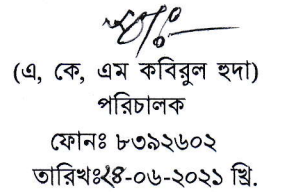 (এ, কে, এম কবিরুল হুদা)
পরিচালক
ফোনঃ ৮৩৯২৬০২
তারিখঃ২৪-০৬-২০২১ খ্রি.